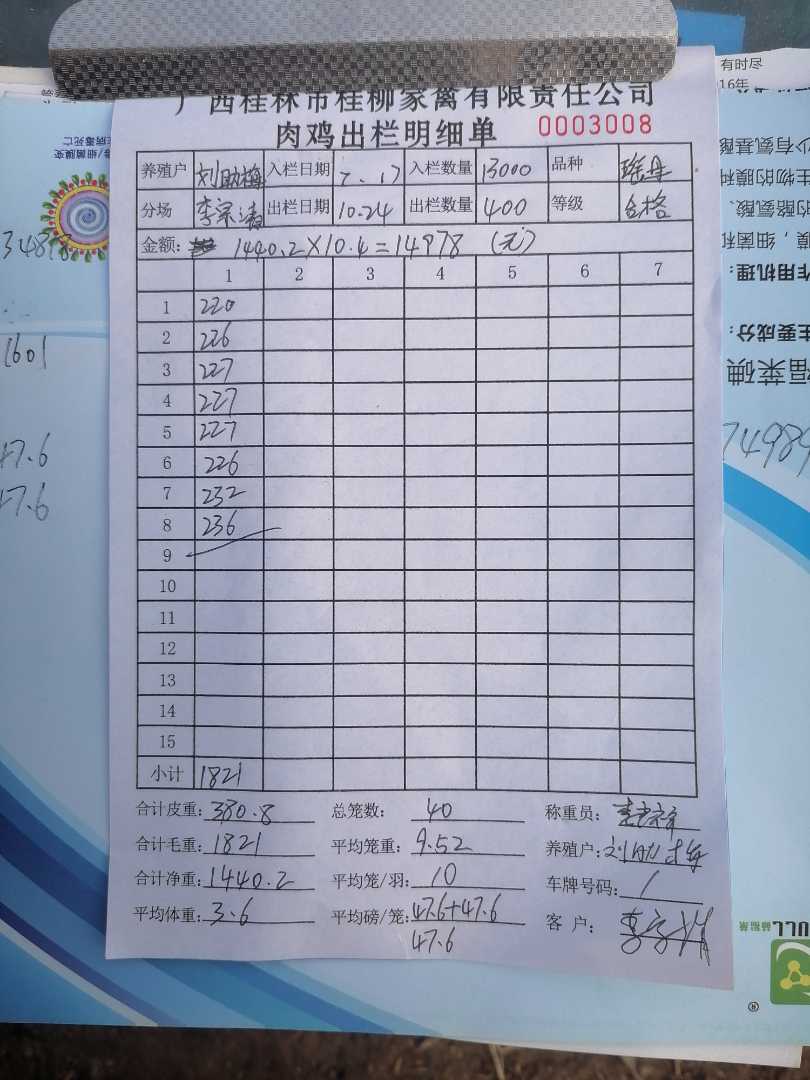 有时尽
16年
广西桂林市桂柳家禽有限责任公司
肉鸡出栏明细单 0003008
养殖户 刘助梅 入栏日期 7.17 入栏数量 13000 品种
分场 李宗清 出栏日期 10.24 出栏数量 400 等级 合格
金额: 1440.2×10.4=14978 (元)
1 2 3 4 5 6 7
1 220
2 226
3 227
4 227
5 227
6 226
7 232
8 236
9
10
11
12
13
14
15
小计 1821
合计皮重: 380.8 总笼数: 40 称重员:
合计毛重: 1821 平均笼重: 9.52 养殖户: 刘助梅
合计净重: 1440.2 平均笼/羽: 10 车牌号码: /
平均体重: 3.6 平均磅/笼: 47.6+47.6 客户:
47.6
1601
47.6
47.6
74989
作用机理:
主要成分:
福莱碘
ULL
®